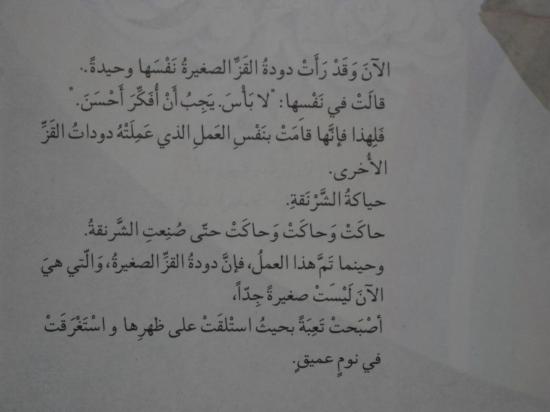 الآنَ وَقَدْ رَأَتْ دودةُ القَزِّ الصغيرةُ نَفْسَها وحيدةً..
قالَتْ في نَفْسِها: "لا بَأْسَ. يَجِبُ أَنْ أُفَكِّرَ أَحْسَنَ."
فَلِهذا فإنَّها قامَتْ بنَفْسِ العَملِ الذي عَمِلَتْهُ دوداتُ القَزِّ
الأُخرى.
حياكةُ الشَّرْنَقةِ.
حاكَتْ وَحاكَتْ وَحاكَتْ حتّى صُنِعتِ الشَّرنقةُ.
وحينما تَمَّ هذا العملُ، فإنَّ دودةُ القزِّ الصغيرةُ، وَالّتي هيَ
الآنَ لَيْسَتْ صغيرةً جِدّاً،
أصْبَحتْ تَعِبَةً بحيثُ استْلقَتْ على ظهرِها و اسْتَغْرَقَتْ
في نومٍ عميقٍ.